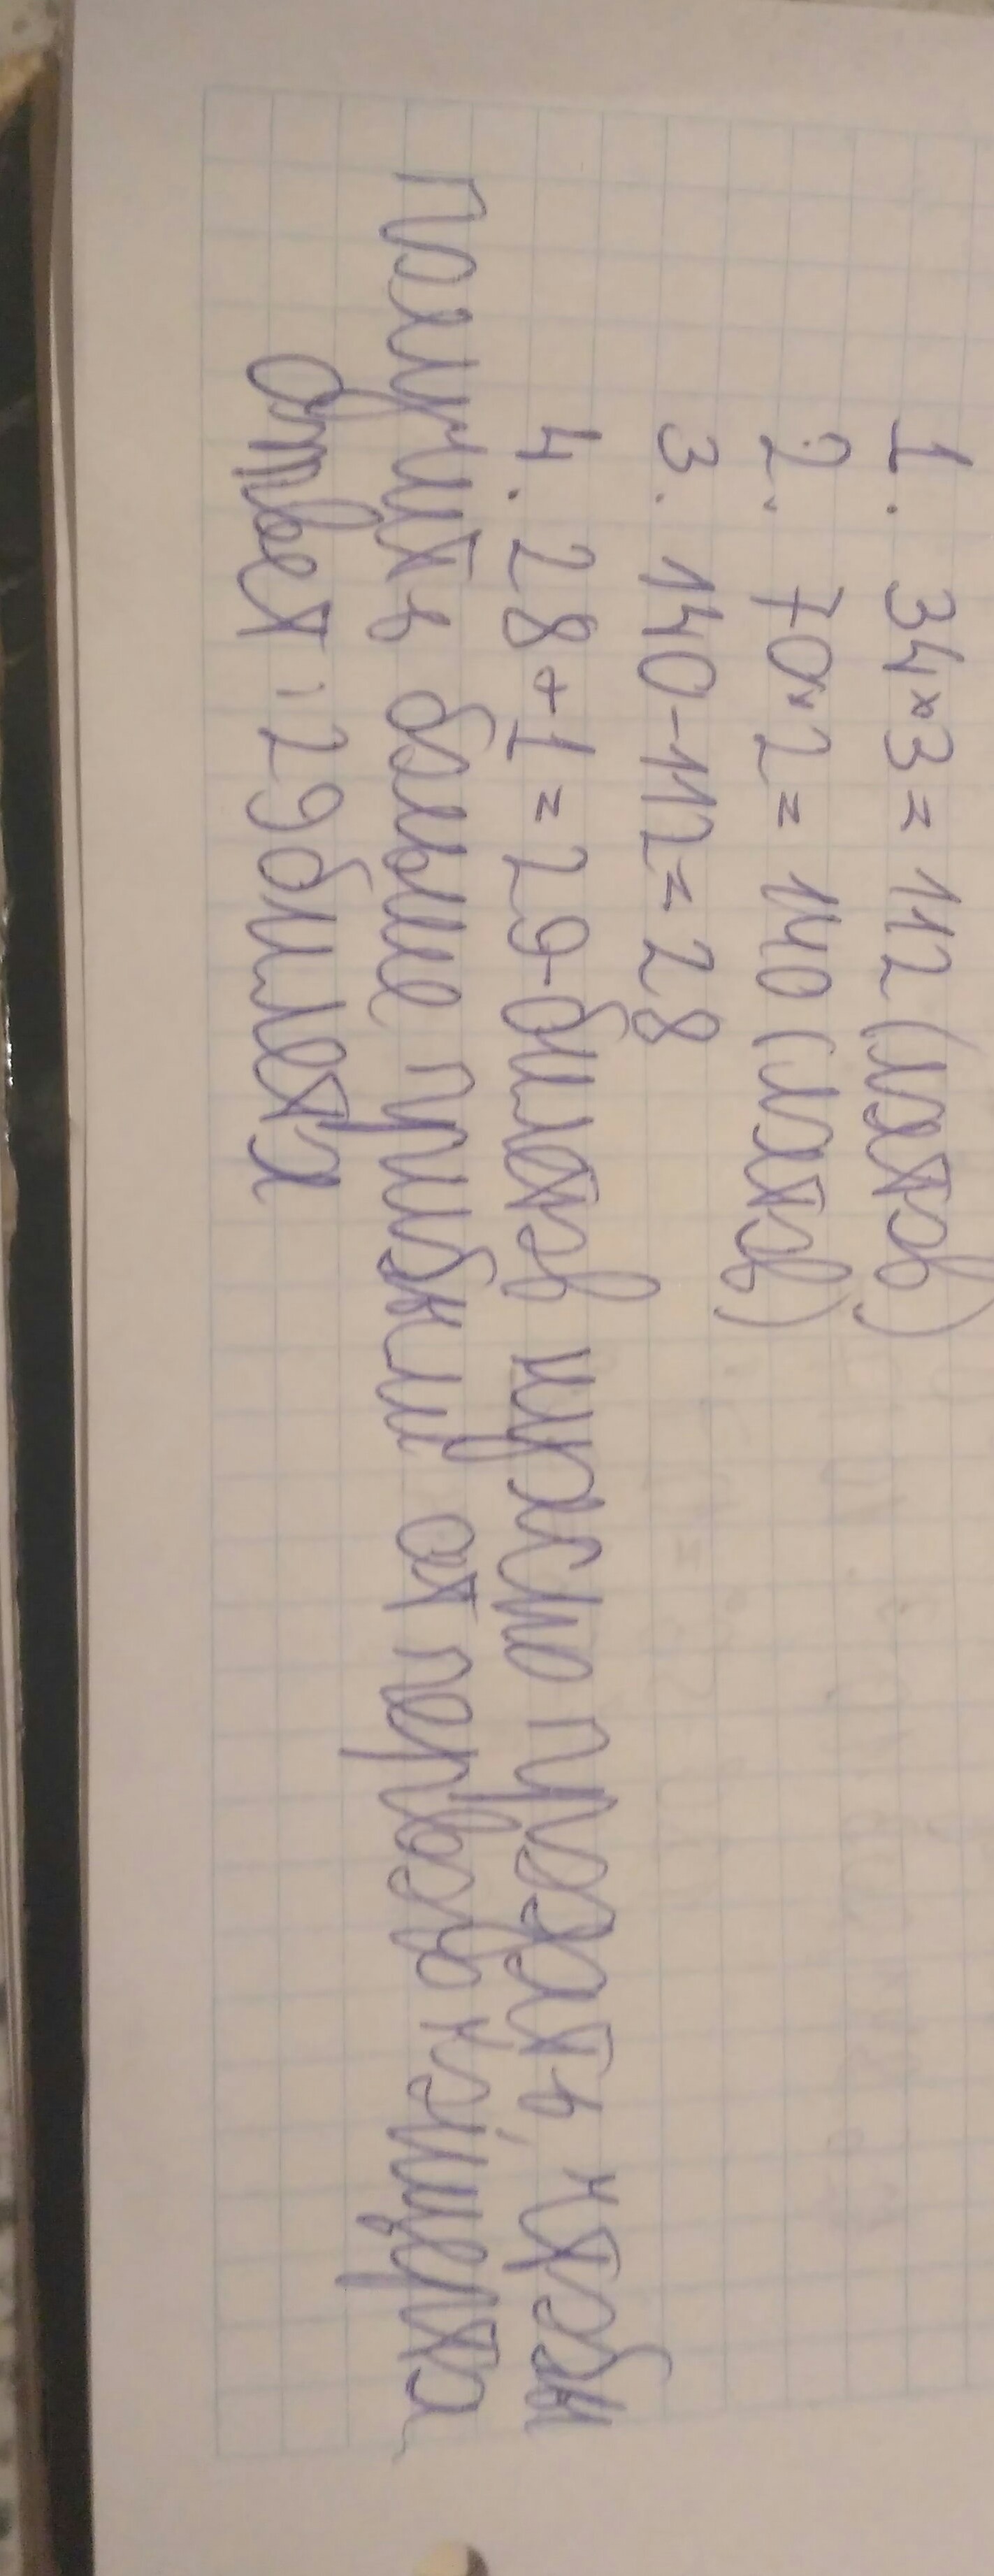 1. 34*3=112 (лятов)
2. 70*2=140 (лятов)
3. 140-112=28
4. 28+1=29-билетов нужно продать, чтобы
получить больше прибыли от первого концерта
Ответ: 29 билета